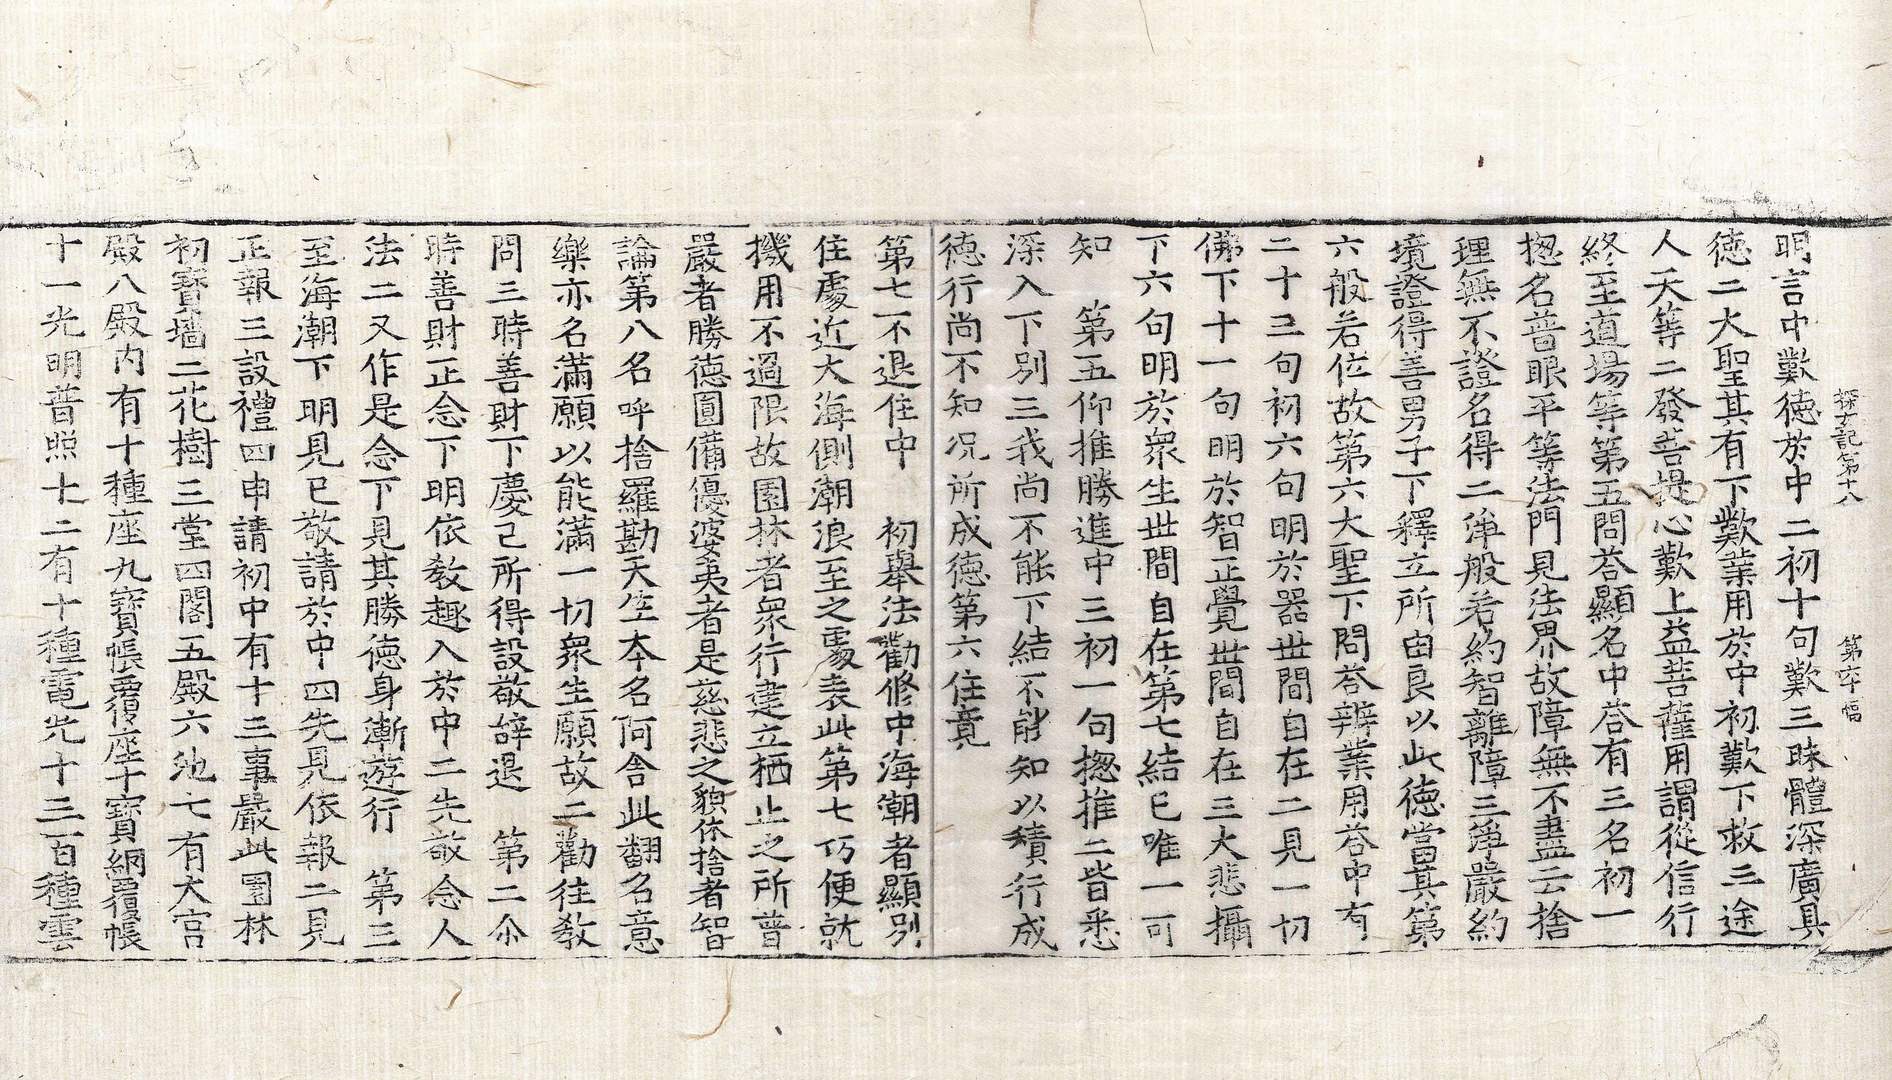 探玄記第十八　第六幅
明言中歎徳於中二初十句歎三昧體深廣具
徳二大聖其有下歎業用於中初歎下救三途
人天等二發菩提心歎上益菩薩用謂從信行
終至道場等第五問荅顯名中荅有三名初一
揔名普眼平等法門見法界故障無不盡云捨
理無不證名得二淨般若約智離障三淨嚴約
境證得善男子下釋立所由良以此徳當其第
六般若位故第六大聖下問荅辨業用荅中有
二十三句初六句明於器世間自在二見一切
佛下十一句明於智正覺世間自在三大悲攝
下六句明於衆生世間自在第七結已唯一可
知　第五仰推勝進中三初一句揔推二皆悉
深入下別三我尚不能下結不能知以積行成
徳行尚不知况所成徳第六住竟
第七不退住中　初舉法勸修中海潮者顯別
住處近大海側潮浪至之處表此第七巧便就
機用不過限故園林者衆行建立栖止之所普
嚴者勝徳圓備優婆夷者是慈悲之貌休捨者智
論第八名呼捨羅勘天竺本名何舎此翻名意
樂亦名滿願以能滿一切衆生願故二勸往教
問三時善財下慶己所得設敬辞退　第二尒
時善財正念下明依敎趣入於中二先敬念人
法二又作是念下見其勝徳身漸遊行　第三
至海潮下明見已敬請於中四先見依報二見
正報三設禮四申請初中有十三事嚴此園林
初寶墻二花樹三堂四閣五殿六池七有大宫
殿八殿内有十種座九寶帳覆座十寶網覆帳
十一光明普照十二有十種電光十三百種雲